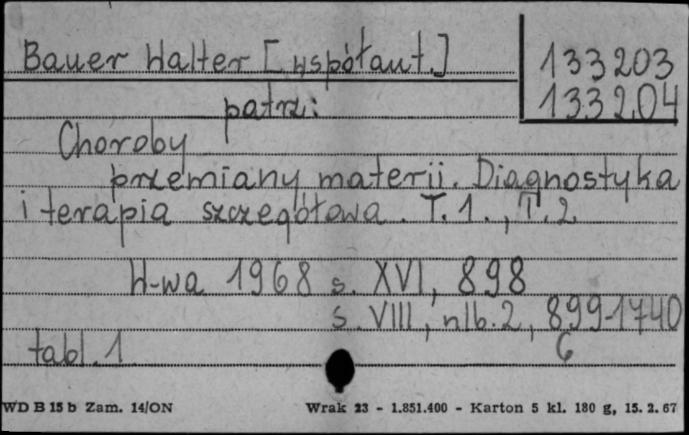 Bauer Walter [współaut.]
133203
133204
patrz:
Choroby
przemiany materii. Diagnostyka
i terapia szczegółowa. T.1., T.2
W-wa 1968 s. XVI, 898
s. VIII, nlb.2, 899-1740
tabl.1
6
WD B 15 b Zam. 14/ON
Wrak 23 - 1.851.400 - Karton 5 kl. 180 g, 15. 2. 67